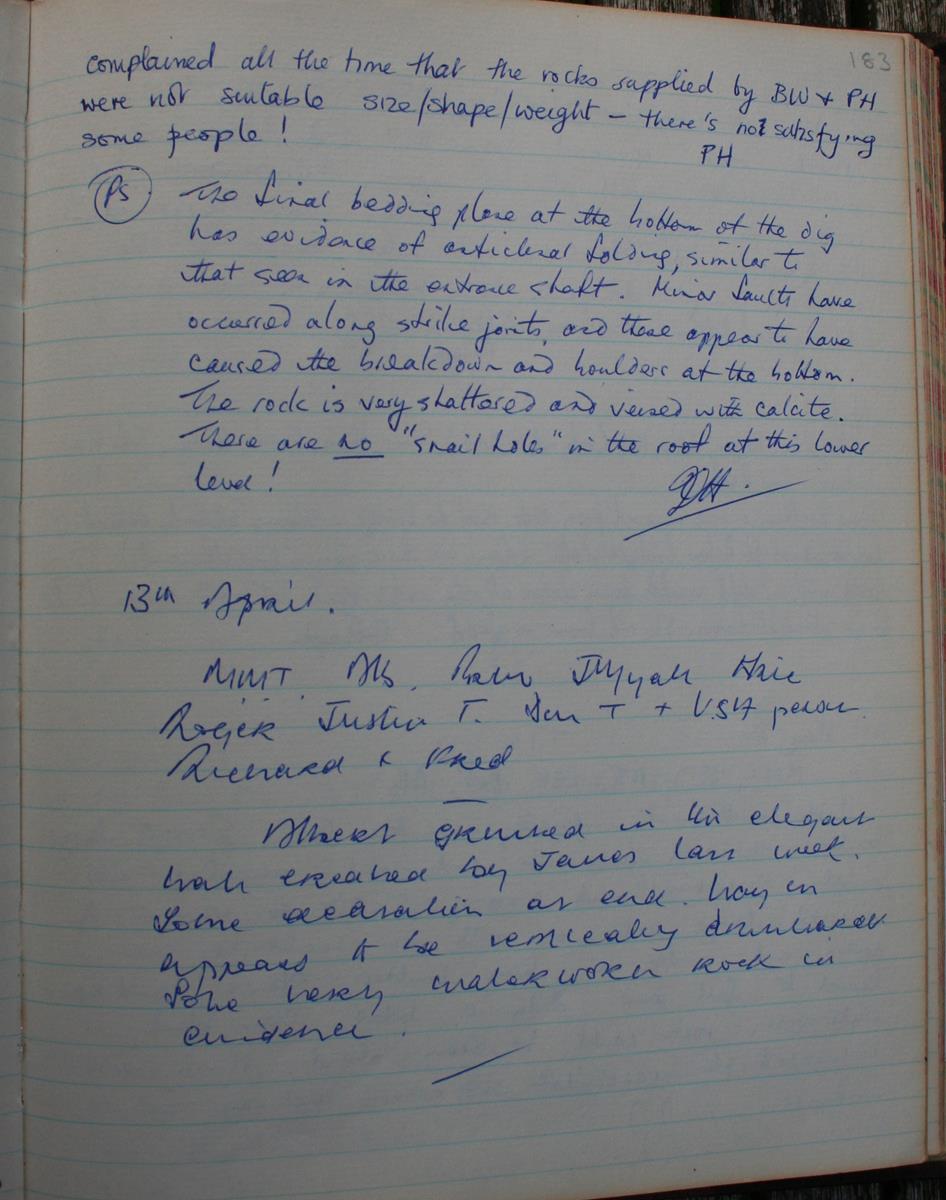 183
complained all the time that the rocks supplied by BW + PH
were not suitable size/shape/weight – there's not satisfying
some people!
PH
PS The final bedding plane at the bottom of the dig
has evidence of anticlinal folding, similar to
that seen in the entrance shaft. Minor faults have
occurred along strike joints, and these appear to have
caused the breakdown and boulders at the bottom.
The rock is very shattered and veined with calcite.
There are no "snail holes" in the roof at this lower
level!
13th April.
MMT, AB,
Roger Justin T. T + USA person
Richard & Fred
Albert grunted in the elegant
hole created by James last week.
Some at end. Way on
appears to be vertically downwards
Some very waterworn rock in
evidence.